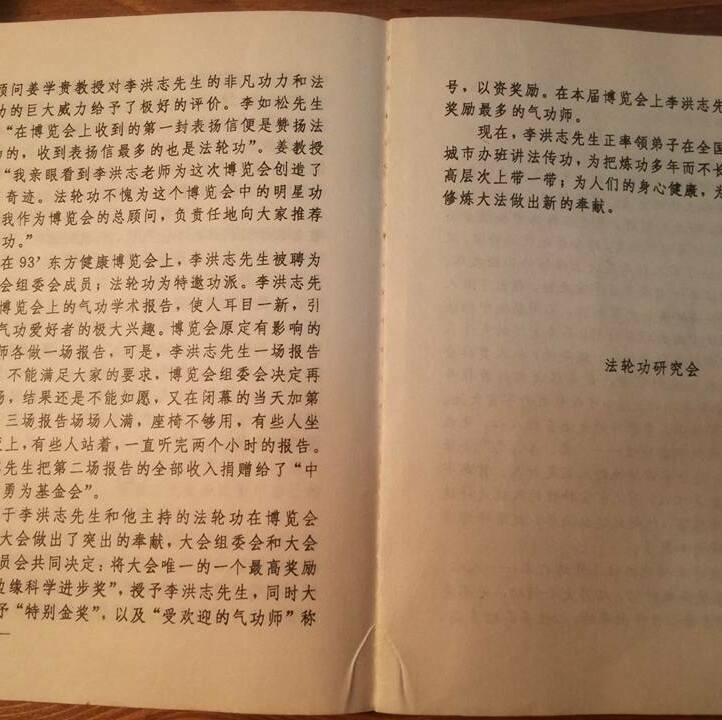 顾问姜学贵教授对李洪志先生的非凡功力和法
功的巨大威力给予了极好的评价。李如松先生
“在博览会上收到的第一封表扬信便是赞扬法
功的，收到表扬信最多的也是法轮功”。姜教授
“我亲眼看到李洪志老师为这次博览会创造了
奇迹。法轮功不愧为这个博览会中的明星功
我作为博览会的总顾问，负责任地向大家推荐
功。”
在93’东方健康博览会上，李洪志先生被聘为
会组委会成员；法轮功为特邀功派。李洪志先
博览会上的气功学术报告，使人耳目一新，引
气功爱好者的极大兴趣。博览会原定有影响的
师各做一场报告，可是，李洪志先生一场报告
不能满足大家的要求，博览会组委会决定再
场，结果还是不能如愿，又在闭幕的当天加第
三场报告场场人满，座椅不够用，有些人坐
上，有些人站着，一直听完两个小时的报告。
先生把第二场报告的全部收入捐赠给了“中
勇为基金会”。
于李洪志先生和他主持的法轮功在博览会
大会做出了突出的奉献，大会组委会和大会
员会共同决定：将大会唯一的一个最高奖励
边缘科学进步奖”，授予李洪志先生，同时大
予“特别金奖”，以及“受欢迎的气功师”称
号，以资奖励。在本届博览会上李洪志先
奖励最多的气功师。
现在，李洪志先生正率领弟子在全国
城市办班讲法传功，为把炼功多年而不长
高层次上带一带；为人们的身心健康，为
修炼大法做出新的奉献。
法轮功研究会